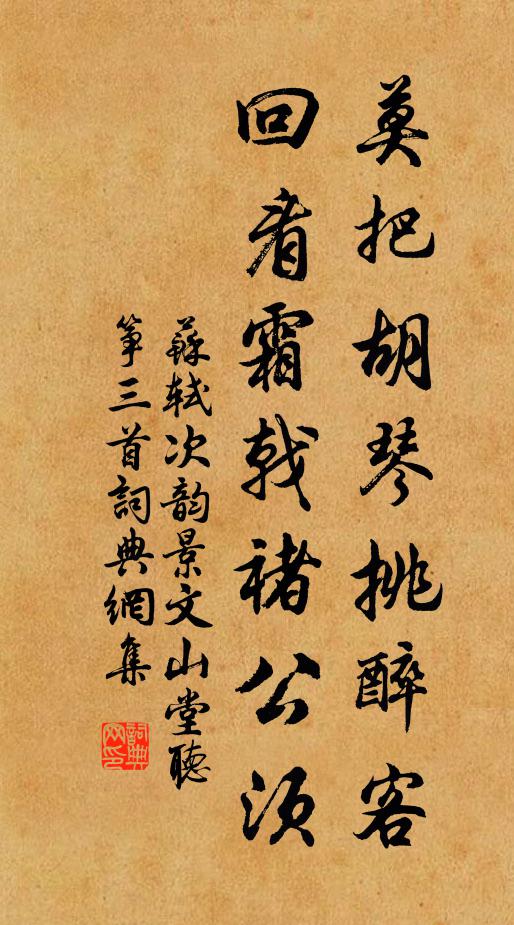 莫把胡琴挑醉客
回看霜戟褚公须
蘇轼次韵景文山堂聴
筝三首詞典網集
詞典网印